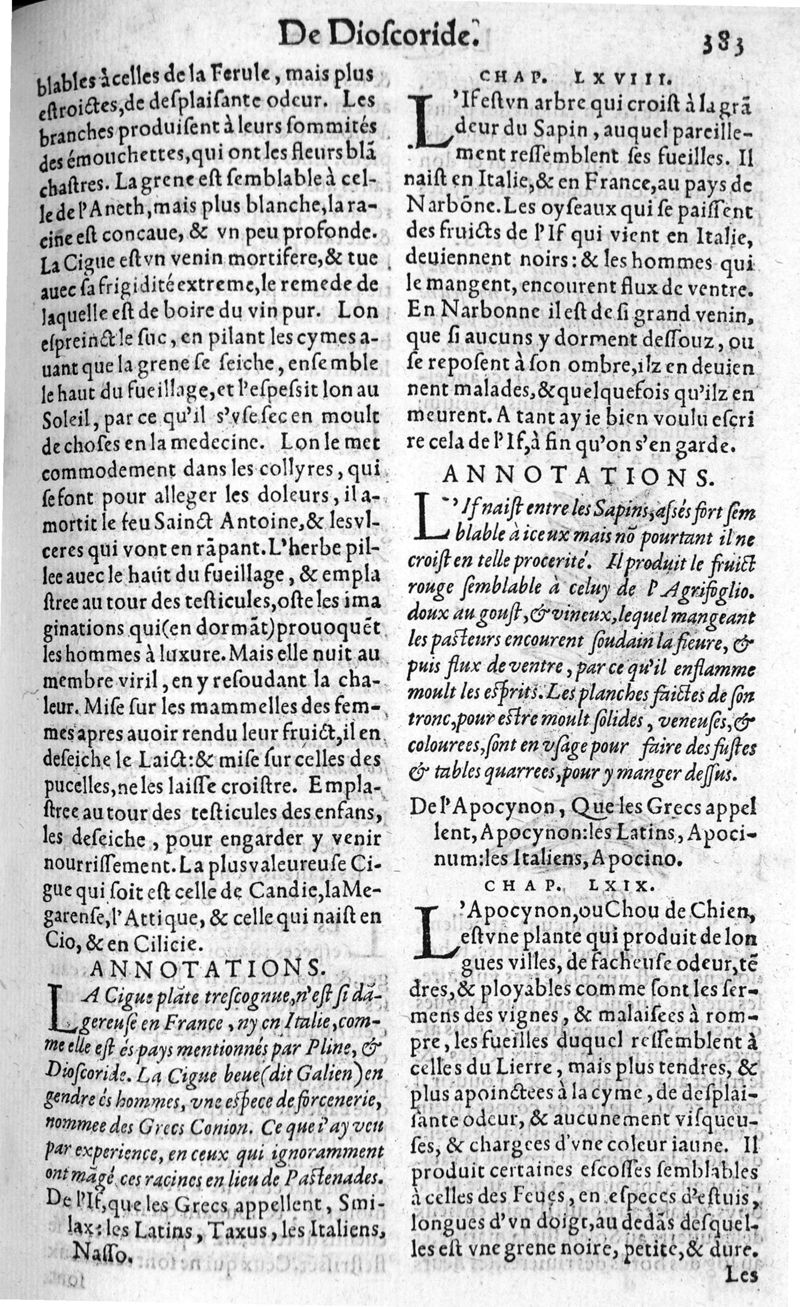 De Dioſcoride.
383
blables à celles de la Ferule, mais plus
eſtroictes, de deſplaiſante odeur. Les
branches produiſent à leurs ſommités
des émouchettes, qui ont les fleurs blã
chaſtres. La grene eſt ſemblable à cel-
le de l'Aneth, mais plus blanche, la ra-
cine eſt concaue, & vn peu profonde.
La Cigue eſt vn venin mortifere, & tue
auec ſa frigidité extreme, le remede de
laquelle eſt de boire du vin pur. Lon
eſpreinct le ſuc, en pilant les cymes a-
uant que la grene ſe ſeiche, enſemble
le haut du fueillage, et l'eſpeſsit lon au
Soleil, par ce qu'il s'vſe ſec en moult
de choſes en la medecine. Lon le met
commodement dans les collyres, qui
ſe font pour alleger les doleurs, il a-
mortit le feu Sainct Antoine, & les vl-
ceres qui vont en rãpant. L'herbe pil-
lee auec le haut du fueillage, & empla
ſtree au tour des teſticules, oſte les ima
ginations qui (en dormãt) prouoquẽt
les hommes à luxure. Mais elle nuit au
membre viril, en y reſoudant la cha-
leur. Miſe ſur les mammelles des fem-
mes apres auoir rendu leur fruict, il en
deſeiche le Laict: & miſe ſur celles des
pucelles, ne les laiſſe croiſtre. Empla-
ſtree au tour des teſticules des enfans,
les deſeiche, pour engarder y venir
nourriſſement. La plus valeureuſe Ci-
gue qui ſoit eſt celle de Candie, la Me-
garenſe, l'Attique, & celle qui naiſt en
Cio, & en Cilicie.
ANNOTATIONS.
LA Cigue plãte treſcognue, n'eſt ſi dã-
gereuſe en France, ny en Italie, com-
me elle eſt és pays mentionnés par Pline, &
Dioſcoride. La Cigue beue (dit Galien) en
gendre és hommes, vne eſpece de forcenerie,
nommee des Grecs Conion. Ce que i'ay veu
par experience, en ceux qui ignoramment
ont mãgé ces racines en lieu de Paſtenades.
De l'If, que les Grecs appellent, Smi-
lax: les Latins, Taxus, les Italiens,
Naſſo.
CHAP. LXVIII.
L'If eſt vn arbre qui croiſt à la grã
deur du Sapin, auquel pareille-
ment reſſemblent ſes fueilles. Il
naiſt en Italie, & en France, au pays de
Narbõne. Les oyſeaux qui ſe paiſſent
des fruicts de l'If qui vient en Italie,
deuiennent noirs: & les hommes qui
le mangent, encourent flux de ventre.
En Narbonne il eſt de ſi grand venin,
que ſi aucuns y dorment deſſouz, ou
ſe repoſent à ſon ombre, ilz en deuien
nent malades, & quelquefois qu'ilz en
meurent. A tant ay ie bien voulu eſcri
re cela de l'If, à fin qu'on s'en garde.
ANNOTATIONS.
L'If naiſt entre les Sapins, aſſés fort ſem
blable à iceux mais nõ pourtant il ne
croiſt en telle procerité. Il produit le fruict
rouge ſemblable à celuy de l'Agrifoglio.
doux au gouſt, & vineux, lequel mangeant
les paſteurs encourent ſoudain la fieure, &
puis flux de ventre, par ce qu'il enflamme
moult les eſprits. Les planches faictes de ſon
tronc, pour eſtre moult ſolides, veneuſes, &
colourees, ſont en vſage pour faire des fuſtes
& tables quarrees, pour y manger deſſus.
De l'Apocynon, Que les Grecs appel
lent, Apocynon: les Latins, Apoci-
num: les Italiens, Apocino.
CHAP. LXIX.
L'Apocynon, ou Chou de Chien,
eſt vne plante qui produit de lon
gues villes, de facheuſe odeur, tẽ
dres, & ployables comme ſont les ſer-
mens des vignes, & malaiſees à rom-
pre, les fueilles duquel reſſemblent à
celles du Lierre, mais plus tendres, &
plus apoinctees à la cyme, de deſplai-
ſante odeur, & aucunement viſqueu-
ſes, & chargees d'vne coleur iaune. Il
produit certaines eſcoſſes ſemblables
à celles des Feues, en eſpeces d'eſtuis,
longues d'vn doigt, au dedãs deſquel-
les eſt vne grene noire, petite, & dure.
Les